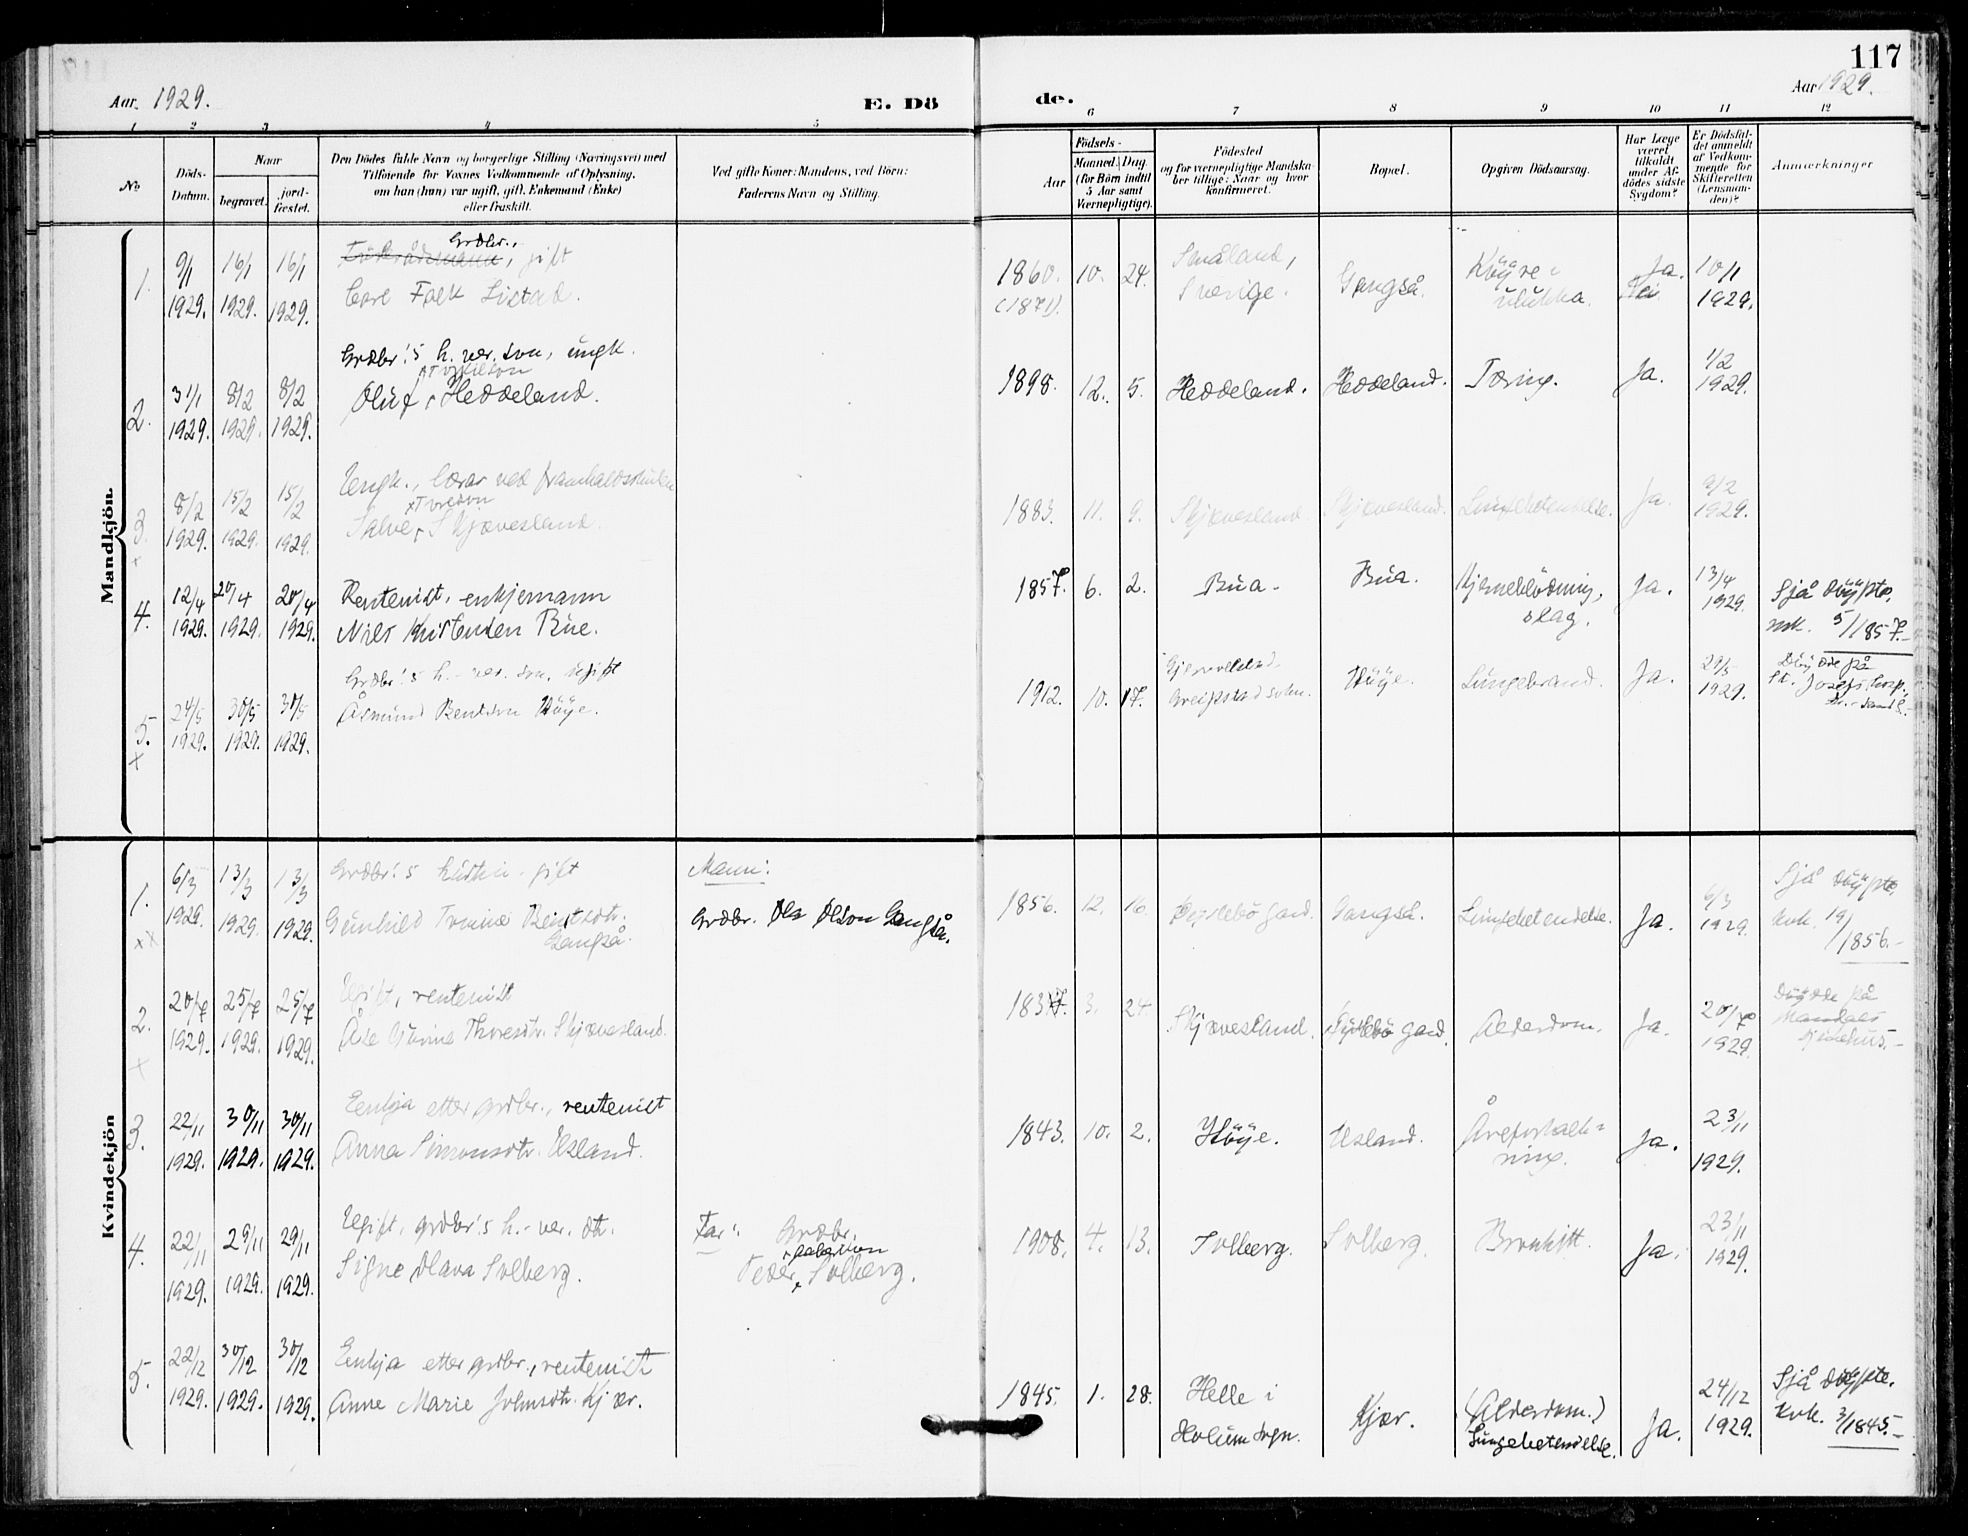 117
Aar. 1929.
E. Dö
de.
Aar 1929.
1 2 3 4 5 6 7 8 9 10 11 12
No
Döds-Datum.
Naar
begravet.
jord-fæstet.
Den Dödes fulde Navn og borgerlige Stilling (Næringsvei) med
Tilföiende for Voxnes Vedkommende af Oplysning,
om han (hun) var ugift, gift, Enkemand (Enke)
eller fraskilt.
Ved gifte Koner: Mandens, ved Börn:
Faderens Navn og Stilling.
Födsels-
Aar
Maaned. Dag.
(for Börn indtil
5 Aar samt
Værnepligtige).
Födested
og for værnepligtige Mandska-
ber tillige: Naar og hvor
konfirmeret.
Bopæl.
Opgiven Dödsaarsag.
Har Læge
været
tilkaldt
under Af-
dödes sidste
Sygdom?
Er Dödsfal-
det anmeldt
af Vedkom-
mende for
Skifteretten
(Lensman-
den)?
Anmærkninger
Mandkjön.
1. 9/1 1929. 16/1 1929. 16/1 1929.
Grdbr., gift
Carl Falk Listad.
1860. (1871). 10. 24.
Småland, Sverige.
Gangså.
Köyre- ulukka.
Ja. Nei
10/1 1929.
2. 31/1 1929. 8/2 1929. 8/2 1929.
Grdbr.'s h. ver. son, ungk.
Oluf Heddeland.
1898. 12. 5.
Heddeland.
Heddeland.
Tæring.
Ja.
1/2 1929.
3. x 8/2 1929. 15/2 1929. 15/2 1929.
Ungk., lærar ved framhaldsskulen
Salve Toreson Skjævesland.
1883. 11. 9.
Skjævesland.
Skjævesland.
Lungebetendelse.
Ja.
9/2 1929.
4. 12/4 1929. 20/4 1929. 20/4 1929.
Rentenist, enkjemann
Nils Kristensen Bue.
1857. 6. 2.
Bua.
Bua.
Hjerneblödning, slag.
Ja.
13/4 1929.
Sjå döypte, mk. 5/1857.
5. x 24/5 1929. 30/5 1929. 30/5 1929.
Grdbr.'s h.-ver. son, ugift
Åsmund Bentson Höye.
1912. 10. 17.
Greipstad sokn.
Höye.
Lungebrand.
Ja.
29/5 1929.
Döydde på St. Josefs hosp., Kr.-sand S.
Kvindekjön
1. xx 6/3 1929. 13/3 1929. 13/3 1929.
Grdbr.'s hustru - gift
Gunhild Tomine Bentsdtr. Gangså.
Mann:
Grdbr. Ola Olson Gangså.
1856. 12. 16.
Gangså.
Lungebetendelse.
Ja.
6/3 1929.
Sjå döypte, kvk. 19/1856.
2. x 20/7 1929. 25/7 1929. 25/7 1929.
Ugift, rentenist
Åse Thoresdtr. Skjævesland.
1837. 3. 24.
Skjævesland.
Alderdom.
Ja.
20/7 1929.
Döydde på Mandals sjukehus.
3. 22/11 1929. 30/11 1929. 30/11 1929.
Eenkja etter grdbr., rentenist
Anna Simonsdtr. Usland.
1843. 10. 2.
Höye.
Usland.
Åreforkalk-ning.
Ja.
23/11 1929.
4. 22/11 1929. 29/11 1929. 29/11 1929.
Ugift, grdbr.'s h.-ver. dtr.
Signe Olava Solberg.
Far: Grdbr.
Peder Solberg.
1908. 4. 13.
Solberg.
Solberg.
Bronkitt.
Ja.
23/11 1929.
5. 22/12 1929. 30/12 1929. 30/12 1929.
Eenkja etter grdbr., rentenist
Anne Marie Johnsdtr. Kjær.
1845. 1. 28.
Helle i Holum sogn.
Kjær.
(Alderdom.) Lungebetendelse.
Ja.
24/12 1929.
Sjå döypte, kvk. 3/1845.